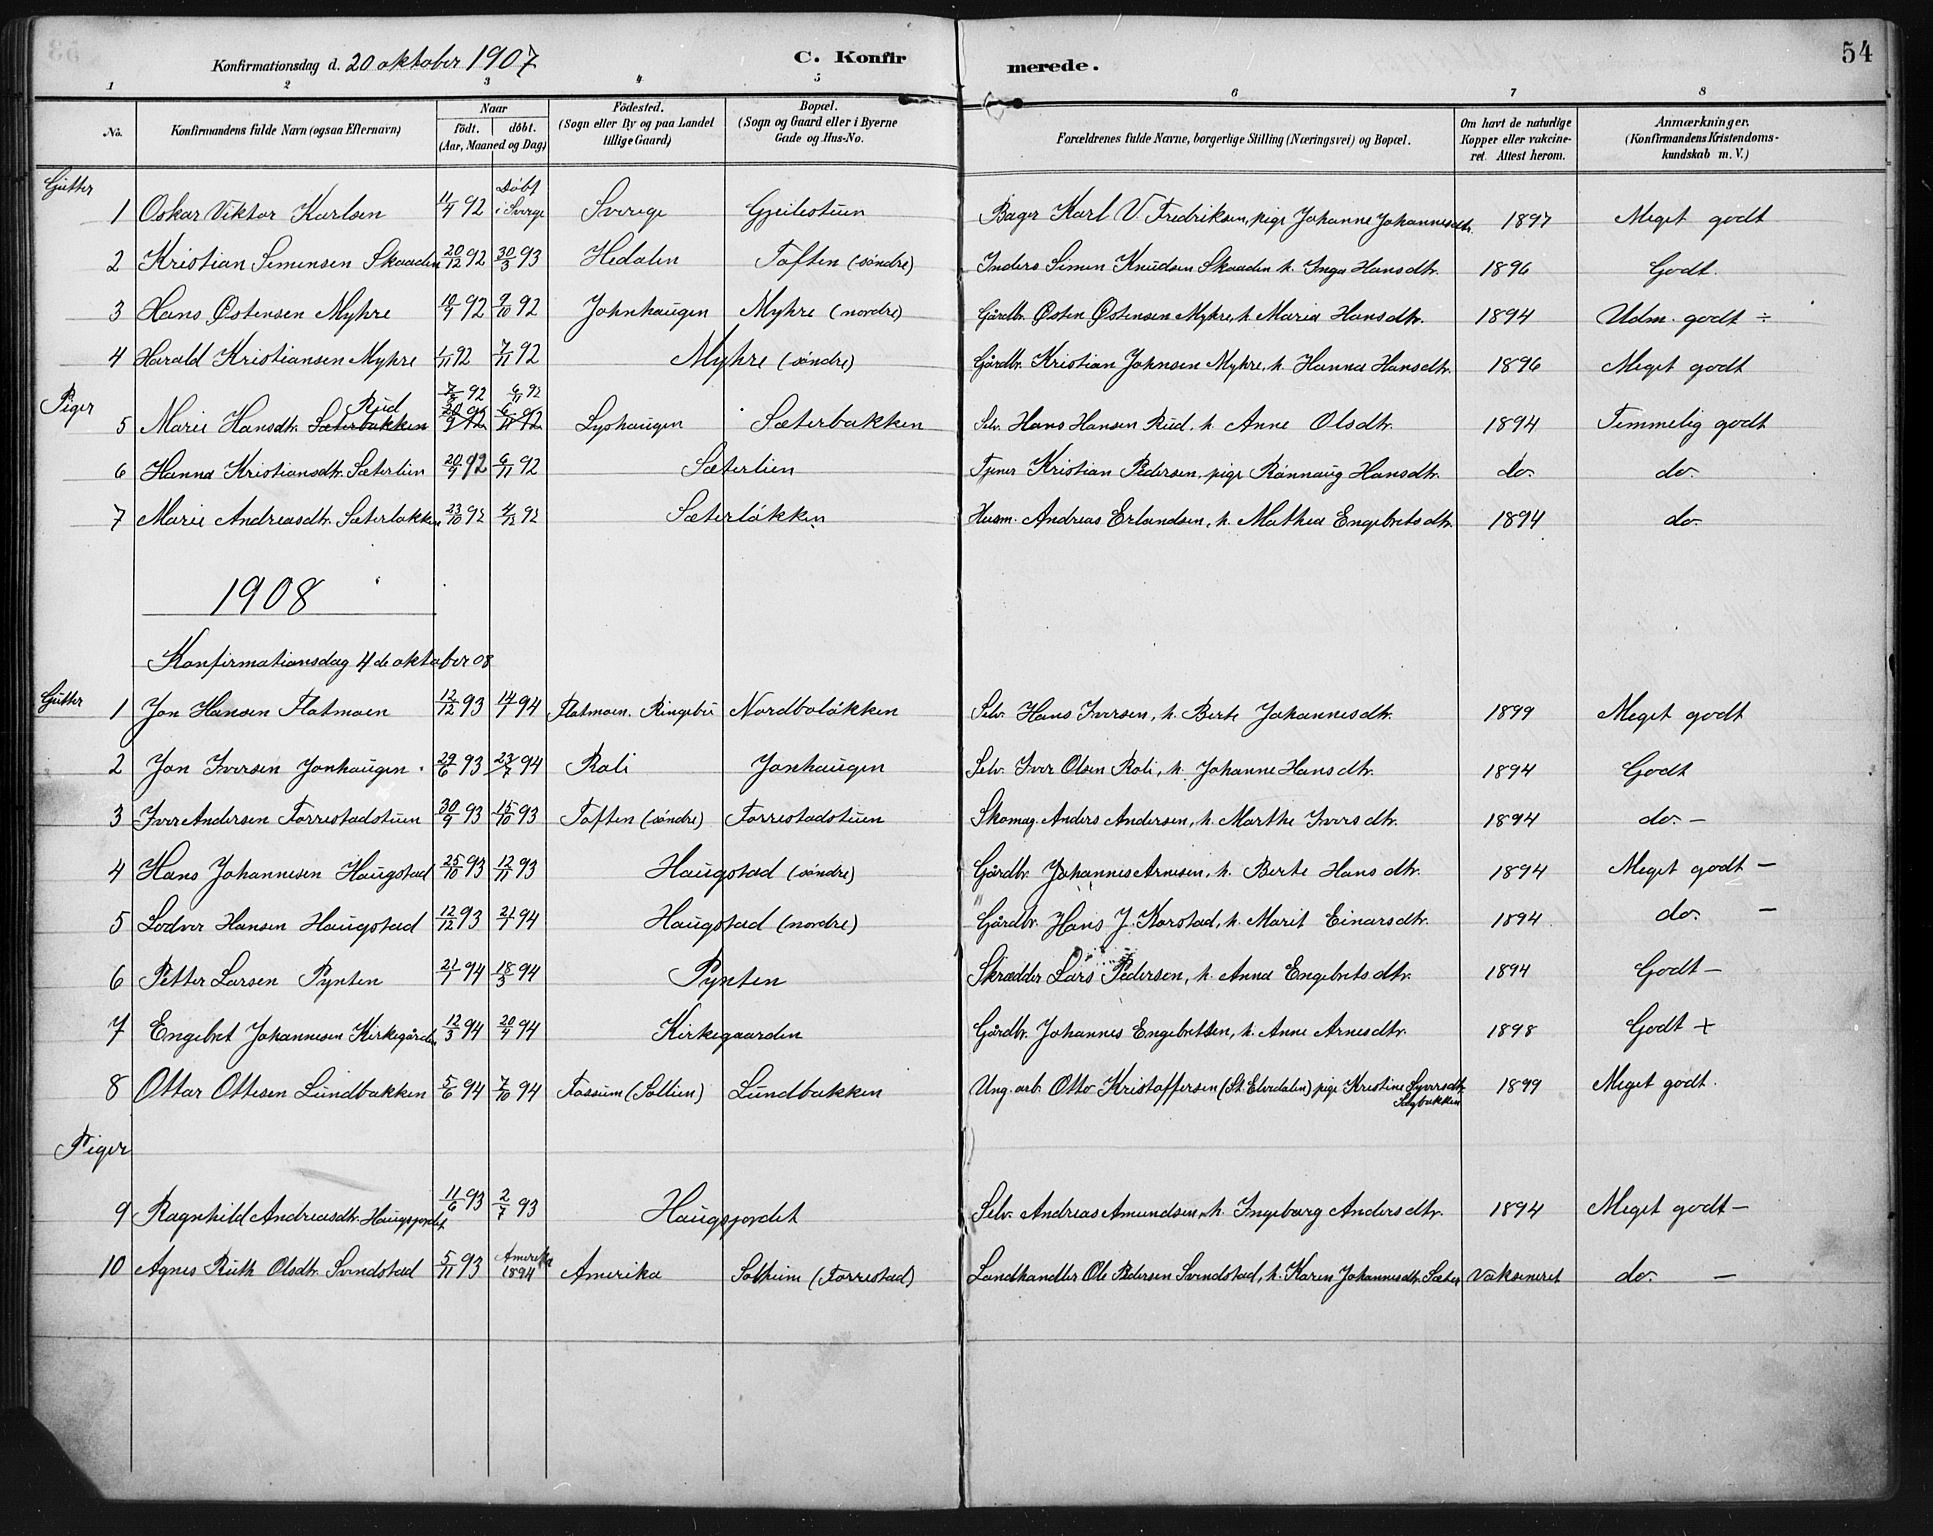 54
Konfirmationsdag d. 20 oktober 1907 C. Konfir merede.
1 2 3 4 5 6 7 8
No. Konfirmandens fulde Navn (ogsaa Efternavn) Naar født. døbt. (Aar, Maaned og Dag) Födested. (Sogn eller By og paa Landet tillige Gaard) Bopæl. (Sogn og Gaard eller i Byerne Gade og Hus-No. Forældrenes fulde Navne, borgerlige Stilling (Næringsvei) og Bopæl. Om havt de naturlige Kopper eller vakcineret. Attest herom. Anmærkninger. (Konfirmandens Kristendomskundskab m. V.)
Gutter
1 Oskar Viktor Karlsen 11/4 92 Döbt i Sverge Sverige Gjeilestuen Bager Karl V. Fredriksen, pige Johanne Johannesdtr. 1897 Meget godt
2 Kristian Simensen Skaaden 20/12 92 30/3 93 Hedalen Toften (söndre) Inders Simen Knudsen Skaaden h. Inga Hansdtr. 1896 Godt.
3 Hans Østensen Myhre 10/9 92 9/10 92 Johnhaugen Myhre (nordre) Gårdbr. Østen Østensen Myhre, h. Maria Hansdtr. 1894 Udm. godt ÷
4 Harald Kristiansen Myhre 1/11 92 7/11 92 Myhre (söndre) Gårdbr. Kristian Johnsen Myhre, h. Hanna Hansdtr. 1896 Meget godt
Piger
5 Marie Hansdtr. Sæterbakken Rud 92 6/11 92 Lyshaugen Sæterbakken Selv. Hans Hansen Rud. h. Anne Olsdtr. 1894 Temmelig godt
6 Hanna Kristiansdtr. Sæterlien 20/9 92 6/11 92 Sæterlien Tjener Kristian Pedersen, pige Rönnaug Hansdtr. do. do.
7 Marie Andreasdtr. Sæterløkken 23/10 92 4/12 92 Sæterlökken Husm. Andreas Erlandsen, h. Mathea Engebretsdtr. 1894 do.
1908
Konfirmationsdag 4de oktober 08
Gutter
1 Jon Hansen Flatmoen 12/12 93 14/1 94 Flatmoen. Ringebu Nordbolökken Selv. Hans Iversen, h. Berte Johannesdtr. 1899 Meget godt
2 Jon Iversen Jonhaugen. 29/6 93 23/7 94 Roli Jonhaugen Selv. Iver Olsen Roli, h. Johanne Hansdtr. 1894 Godt
3 Iver Andersen Forrestadstuen 30/9 93 15/10 93 Toften (söndre) Forrestadstuen Skomag. Anders Andersen, h. Marthe Iversdtr. 1894 do. —
4 Hans Johannesen Haugstad 25/10 93 12/11 93 Haugstad (söndre) Gårdbr. Johannes Arnesen, h. Berte Hansdtr. 1894 Meget godt —
5 Lodver Hansen Haugstad 12/12 93 21/1 94 Haugstad (nordre) Gårdbr. Hans J. Korstad, h. Marit Einarsdtr. 1894 do. —
6 Petter Larsen Pynten 21/1 94 18/3 94 Pynten Skrædder Lars Pedersen, h. Anna Engebretsdtr. 1894 Godt —
7 Engebret Johannesen Kirkegården 12/3 94 20/4 94 Kirkegaarden Gårdbr. Johannes Engebretsen, h. Anne Arnesdtr. 1898 Godt +
8 Ottar Ottesen Lundbakken 5/6 94 7/10 94 Fossum (Sollien) Lundbakken Ung. arb. Otto Kristoffersen (St. Elvedalen) pige Kristine Syversdtr. Sagbakken 1899 Meget godt.
Piger
9 Ragnhild Andreasdtr. Haugsjordet 11/6 93 2/7 93 Haugsjordet Selv. Andreas Amundsen, h. Ingeborg Andersdtr. 1894 Meget godt —
10 Agnes Ruth Olsdtr. Svindstad 5/11 93 Amerika 1894 Amerika Solheim (Forrestad) Landhandler Ole Pedersen Svindstad, h. Karen Johannesdtr. Sæter Vaksineret do. —